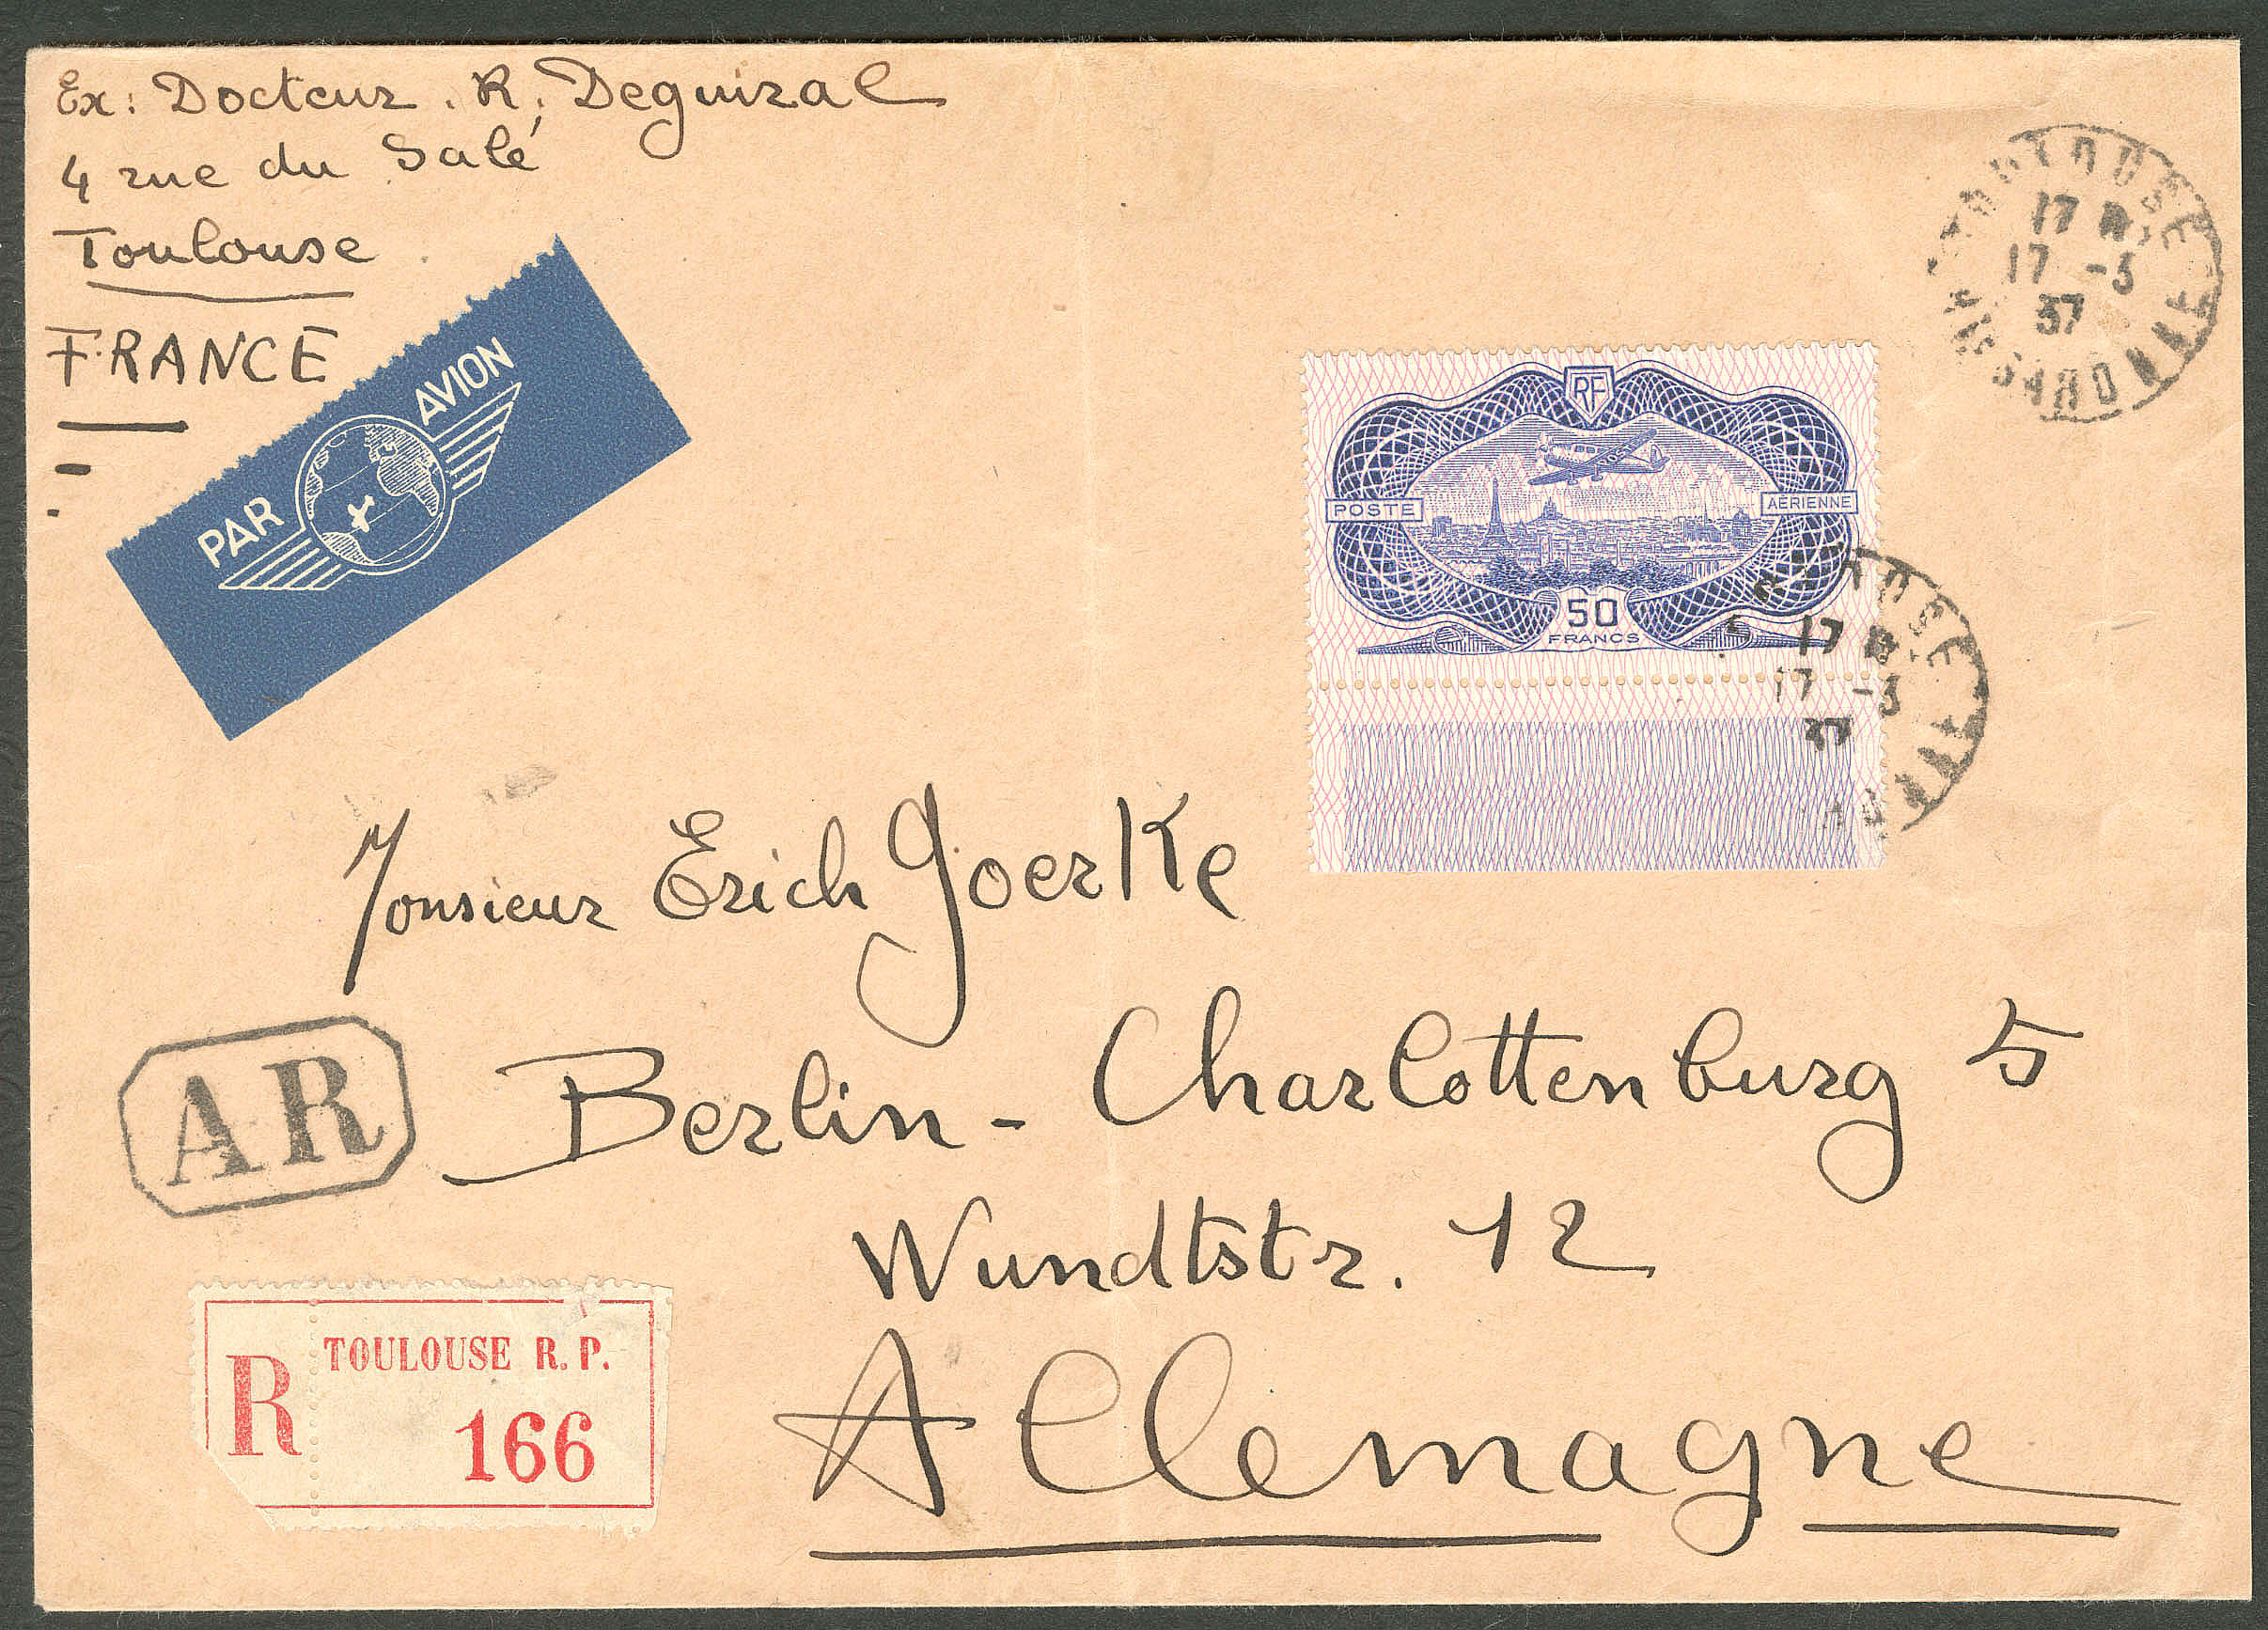 Ex: Docteur. R. Deguiral
4 rue du Salé
Toulouse
FRANCE
PAR AVION
TOULOUSE
17 H
17 -3
37
RF
POSTE AÉRIENNE
50
FRANCS
17 H
17 -3
37
Monsieur Erich Goerke
Berlin - Charlottenburg 5
Wundtstr. 12
Allemagne
AR
R TOULOUSE R. P.
166